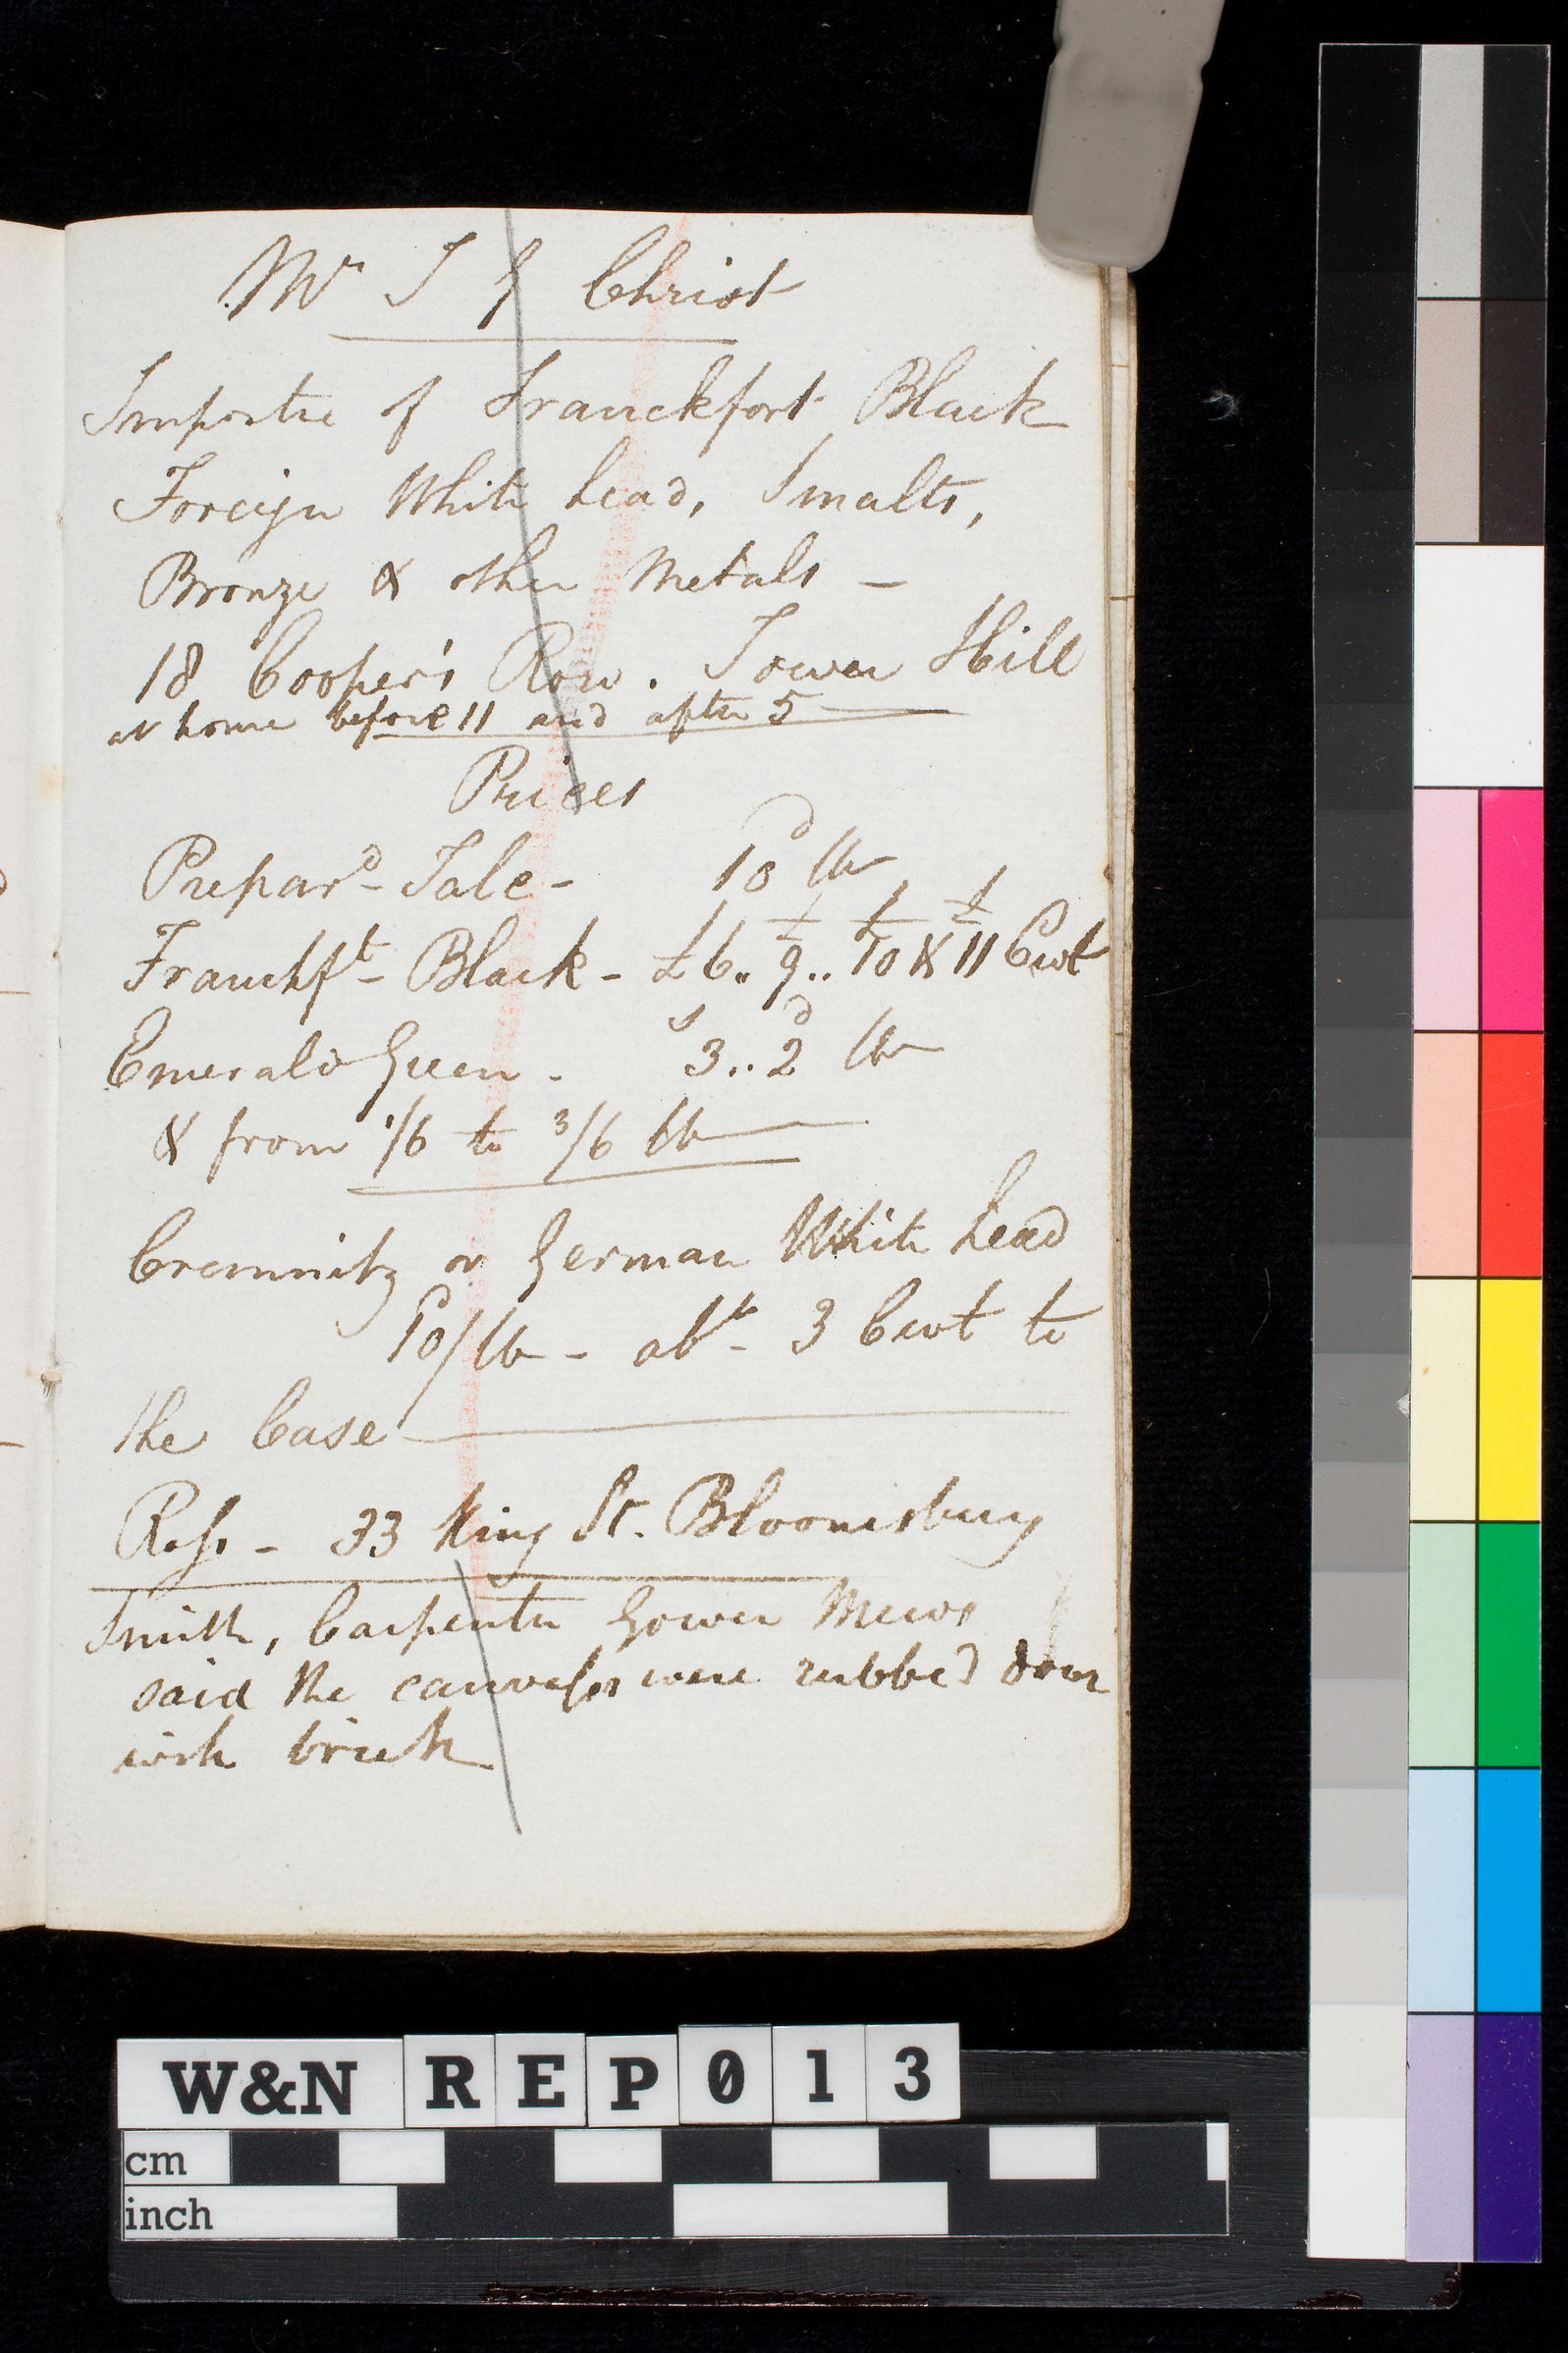 Mr J G Christ
Importer of Franckfort Black
Foreign White lead, Smalts,
Bronze & other Metals —
18 Cooper's Row. Tower Hill
at home before 11 and after 5 —
Prices
Prepard- Talc - 10d lb
Franckft- Black - £6.. £9.. £10 & £11 Cwt
Emerald Green - 3s..2d lb
& from 1/6 to 3/6 lb —
Cremnitz or German White lead
10d/lb - abt- 3 Cwt to
the Case —
Ross - 33 King St. Bloomsbury
Smith, Carpenter Gower Mews
said the canvasses were rubbed down
with brick
W&N REP013
cm
inch